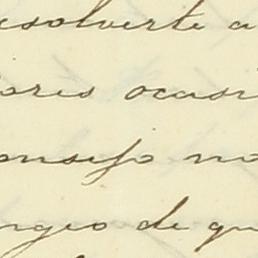 esolverte a
ores ocasi
onsejo no
ngeo de qu